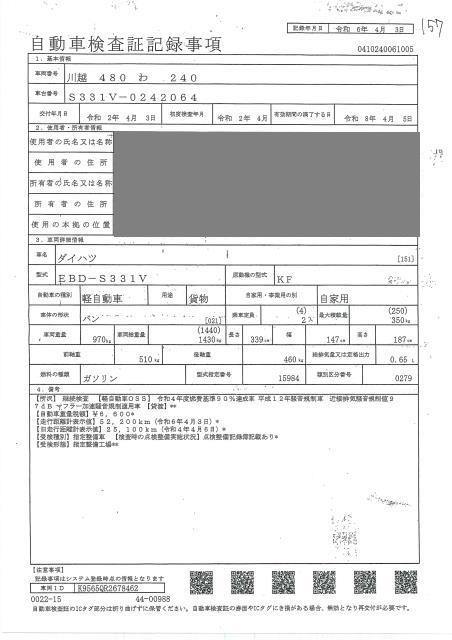 記録年月日 令和 6年 4月 3日
157
自動車検査証記録事項
0410240061005
1. 基本情報
車両番号 川越 480 わ 240
車台番号 S331V-0242064
交付年月日 令和 2年 4月 3日 初度検査年月 令和 2年 4月 有効期間の満了する日 令和 8年 4月 5日
2. 使用者・所有者情報
使用者の氏名又は名称
使用者の住所
所有者の氏名又は名称
所有者の住所
使用の本拠の位置
3. 車両詳細情報
車名 ダイハツ [151]
型式 EBD-S331V 原動機の型式 KF
自動車の種別 軽自動車 用途 貨物 自家用・事業用の別 自家用
車体の形状 バン [021] 乗車定員 (4) 2人 最大積載量 (250) 350kg
車両重量 970kg 車両総重量 (1440) 1430kg 長さ 339cm 幅 147cm 高さ 187cm
前軸重 510kg 後軸重 460kg 総排気量又は定格出力 0.65 L
燃料の種類 ガソリン 型式指定番号 15984 類別区分番号 0279
4. 備考
【所沢】 継続検査 【軽自動車OSS】 令和4年度燃費基準90%達成車 平成12年騒音規制車 近接排気騒音規制値9
7dB マフラー加速騒音規制適用車 【貨渡】**
【自動車重量税額】¥6,600*
【走行距離計表示値】52,200km (令和6年4月3日)
【旧走行距離計表示値】25,100km (令和4年4月6日)*
【受検種別】指定整備車 【検査時の点検整備実施状況】点検整備記録簿記載あり*
【受検形態】指定整備工場**
【注意事項】
記録事項はシステム登録時点の情報となります
車両ID K9565QR2678462
0022-15 44-00988
自動車検査証のICタグ部分は折り曲げずに保管ください。自動車検査証の券面やICタグにき損がある場合、無効となり再交付が必要です。